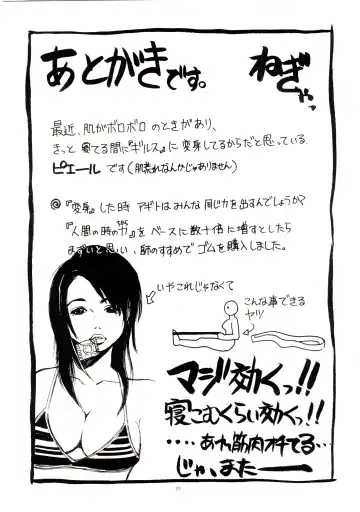 あとがきです。
ねぎゃっ
最近、肌がボロボロのときがあり、
きっと寝てる間に『ギルス』に変身してるからだと思っている
ピエールです(肌荒れなんかじゃありません)
@『変身』した時アギトはみんな同じ力を出すんでしょうか?
『人間の時の力』をベースに数十倍に増すとしたら
まずいと思い、師のすすめでゴムを購入しました。
いやこれじゃなくて
こんな事できる
ヤツ
マジ効くっ!!
寝こむくらい効くっ!!
‥‥あれ筋肉オチてる…
じゃ、またー